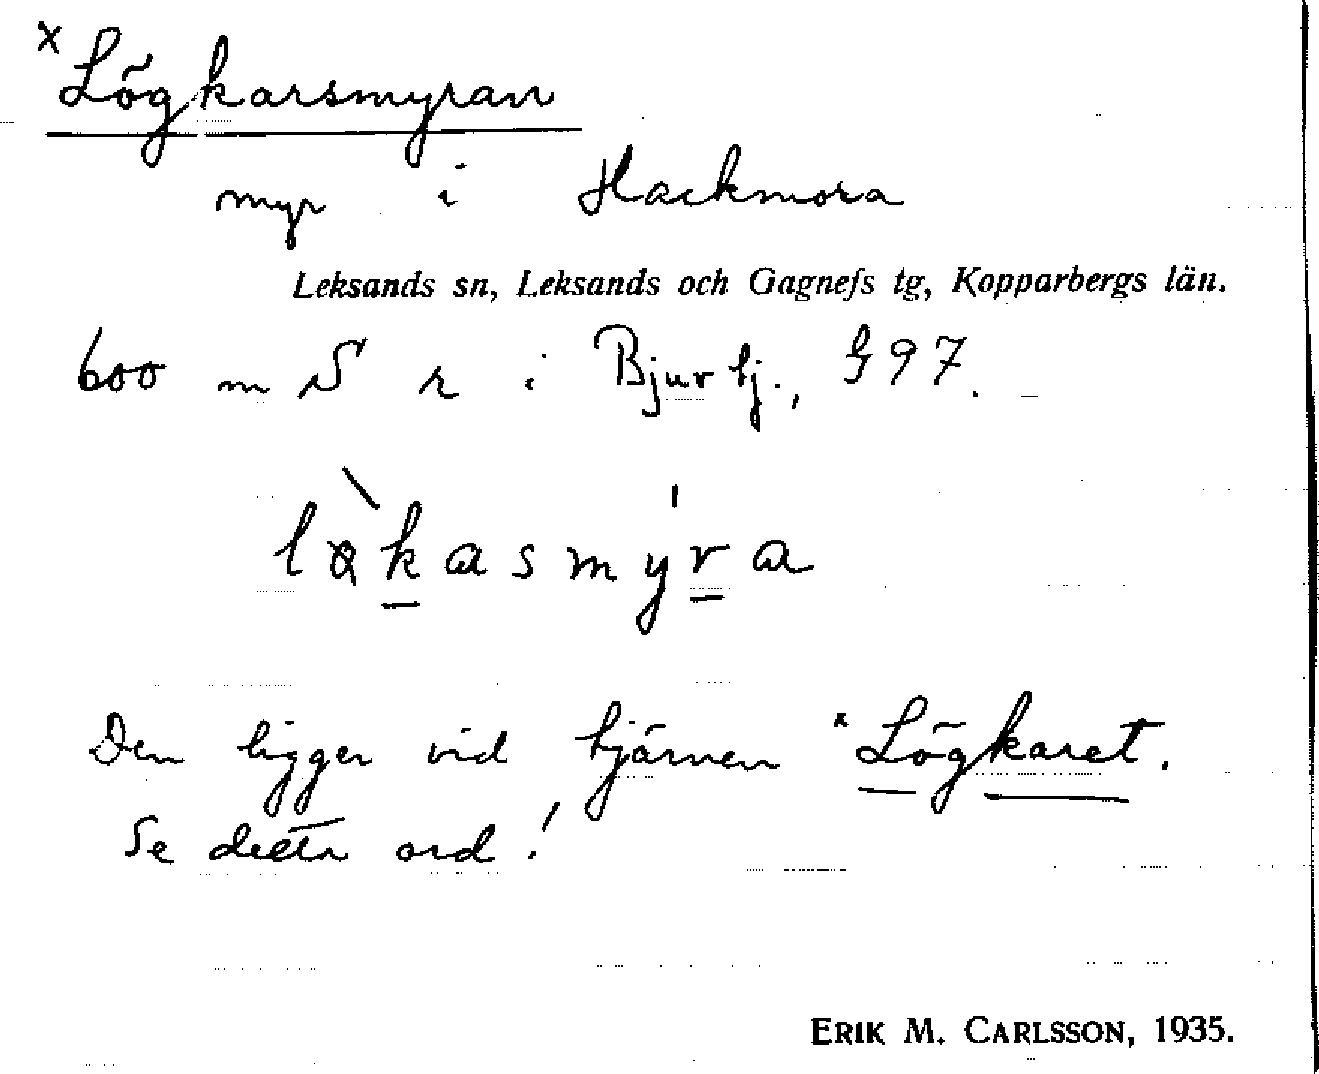 x Lögkarsmyran
myr i Hackmora
Leksands sn, Leksands och Gagnefs tg, Kopparbergs län.
600 m S r i Bjurtj., § 97.
Den ligger vid tjärnen x Lögkaret.
Se detta ord!
ERIK M. CARLSSON, 1935.